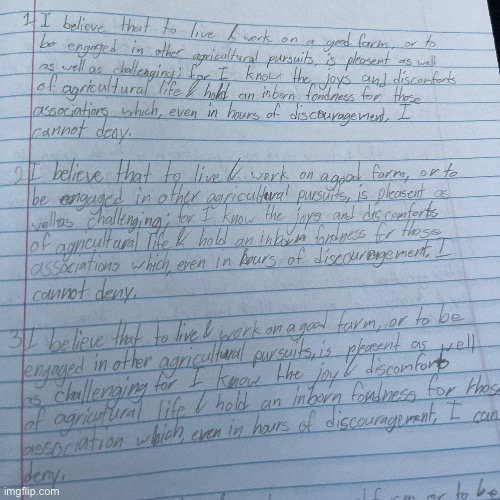 1. I believe that to live & work on a good farm, or to
be engaged in other agricultural pursuits, is pleasent as well
as well as challenging; for I know the joys and discomforts
of agricultural life & hold an inborn fondness for those
associations which, even in hours of discouragement, I
cannot deny.
2. I believe that to live & work on a good farm, or to
be engaged in other agricultural pursuits, is pleasent as
well as challenging; for I know the joys and discomforts
of agricultural life & hold an inborn fondness for those
associations which, even in hours of discouragement, I
cannot deny.
3. I believe that to live & work on a good farm, or to be
engaged in other agricultural pursuits, is pleasent as well
as challenging for I know the joy & discomforts
of agricultural life & hold an inborn fondness for those
association which, even in hours of discouragement, I can
deny.
farm or to be
imgflip.com